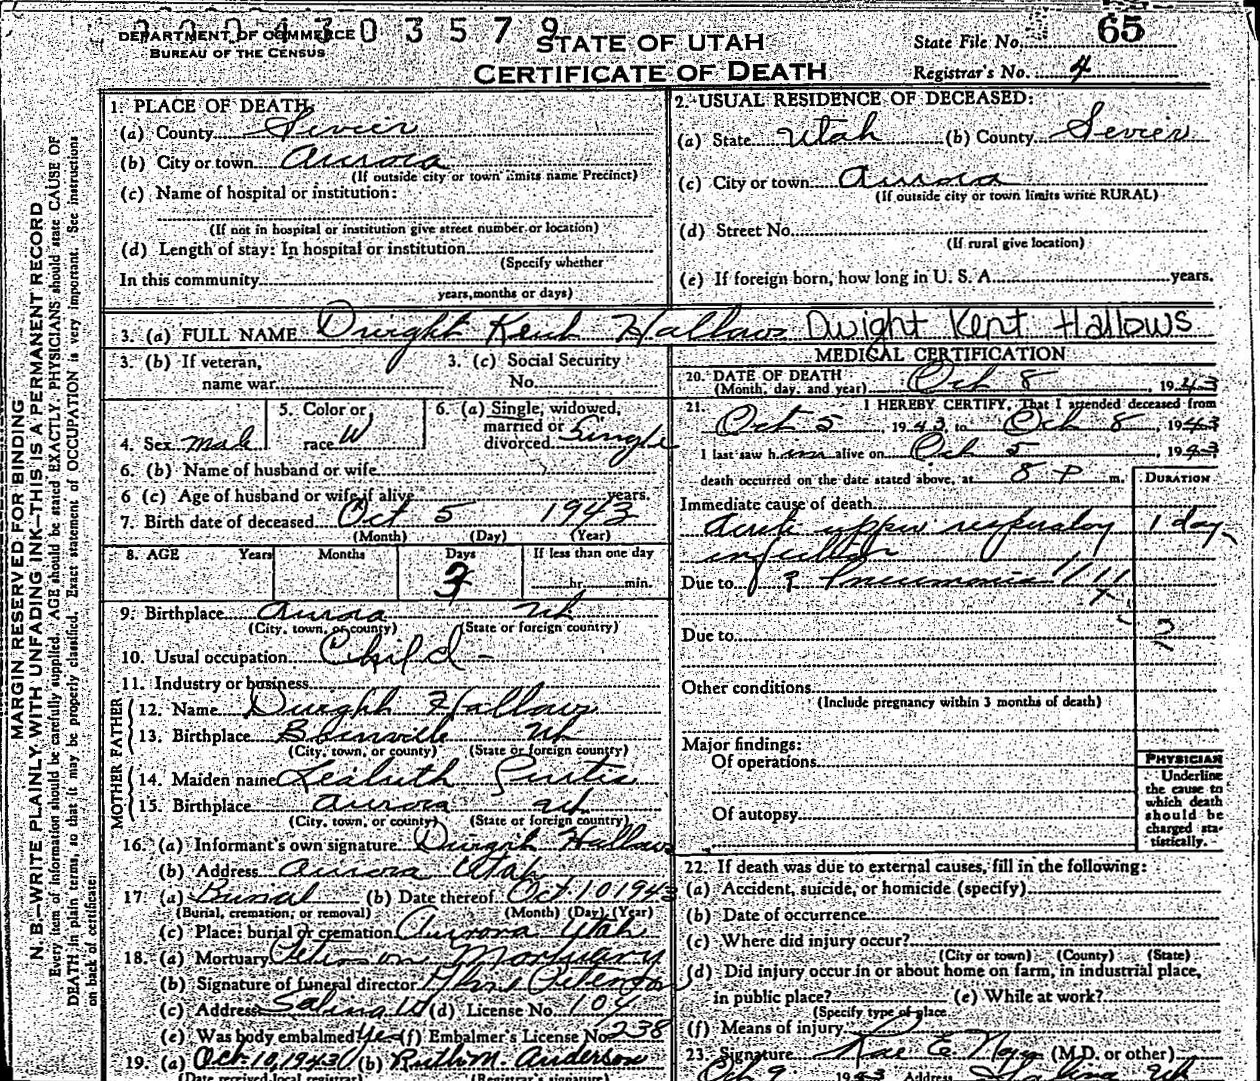 2004303579
DEPARTMENT OF COMMERCE
BUREAU OF THE CENSUS
STATE OF UTAH
CERTIFICATE OF DEATH
State File No. 65
Registrar's No. 4
MARGIN RESERVED FOR BINDING
N. B.—WRITE PLAINLY WITH UNFADING INK—THIS IS A PERMANENT RECORD
Every item of information should be carefully supplied. AGE should be stated EXACTLY. PHYSICIANS should state CAUSE OF
DEATH in plain terms, so that it may be properly classified. Exact statement of OCCUPATION is very important. See instructions
on back of certificate.
1. PLACE OF DEATH:
(a) County Sevier
(b) City or town Aurora
(If outside city or town limits name Precinct)
(c) Name of hospital or institution:
(If not in hospital or institution give street number or location)
(d) Length of stay: In hospital or institution
(Specify whether
In this community
years, months or days)
2. USUAL RESIDENCE OF DECEASED:
(a) State Utah (b) County Sevier
(c) City or town Aurora
(If outside city or town limits write RURAL)
(d) Street No.
(If rural give location)
(e) If foreign born, how long in U. S. A. years.
3. (a) FULL NAME Dwight Kent Hallows Dwight Kent Hallows
3. (b) If veteran, name war
3. (c) Social Security No.
4. Sex male
5. Color or race W
6. (a) Single, widowed, married or divorced Single
6. (b) Name of husband or wife
6 (c) Age of husband or wife if alive years.
7. Birth date of deceased Oct 5 1943
(Month) (Day) (Year)
8. AGE Years Months Days If less than one day
3 hr. min.
9. Birthplace Aurora Ut
(City, town, or county) (State or foreign country)
10. Usual occupation Child
11. Industry or business
FATHER
12. Name Dwight Hallows
13. Birthplace Ut
(City, town, or county) (State or foreign country)
MOTHER
14. Maiden name
15. Birthplace Aurora Ut
(City, town, or county) (State or foreign country)
16. (a) Informant's own signature Dwight Hallows
(b) Address Aurora Utah
17. (a) Burial (b) Date thereof Oct 10 1943
(Burial, cremation, or removal) (Month) (Day) (Year)
(c) Place: burial or cremation Aurora Utah
18. (a) Mortuary Peterson Mortuary
(b) Signature of funeral director Peterson
(c) Address Salina Ut (d) License No. 104
(e) Was body embalmed Yes (f) Embalmer's License No. 238
19. (a) Oct. 10, 1943 (b) Ruth M. Anderson
(Date received local registrar) (Registrar's signature)
MEDICAL CERTIFICATION
20. DATE OF DEATH
(Month, day, and year) Oct 8, 1943
21. I HEREBY CERTIFY, That I attended deceased from
Oct 5, 1943, to Oct 8, 1943
I last saw him alive on Oct 5 1943
death occurred on the date stated above, at 8 P m.
DURATION
Immediate cause of death
acute upper respiratory 1 day
infection
Due to ? Pneumonia
Due to ?
Other conditions
(Include pregnancy within 3 months of death)
Major findings:
Of operations
Of autopsy
PHYSICIAN
Underline
the cause to
which death
should be
charged sta-
tistically.
22. If death was due to external causes, fill in the following:
(a) Accident, suicide, or homicide (specify)
(b) Date of occurrence
(c) Where did injury occur?
(City or town) (County) (State)
(d) Did injury occur in or about home on farm, in industrial place,
in public place? (e) While at work?
(Specify type of place
(f) Means of injury
23. Signature Rae E. Noyes (M.D. or other)
Oct 9 1943 Address Salina Ut